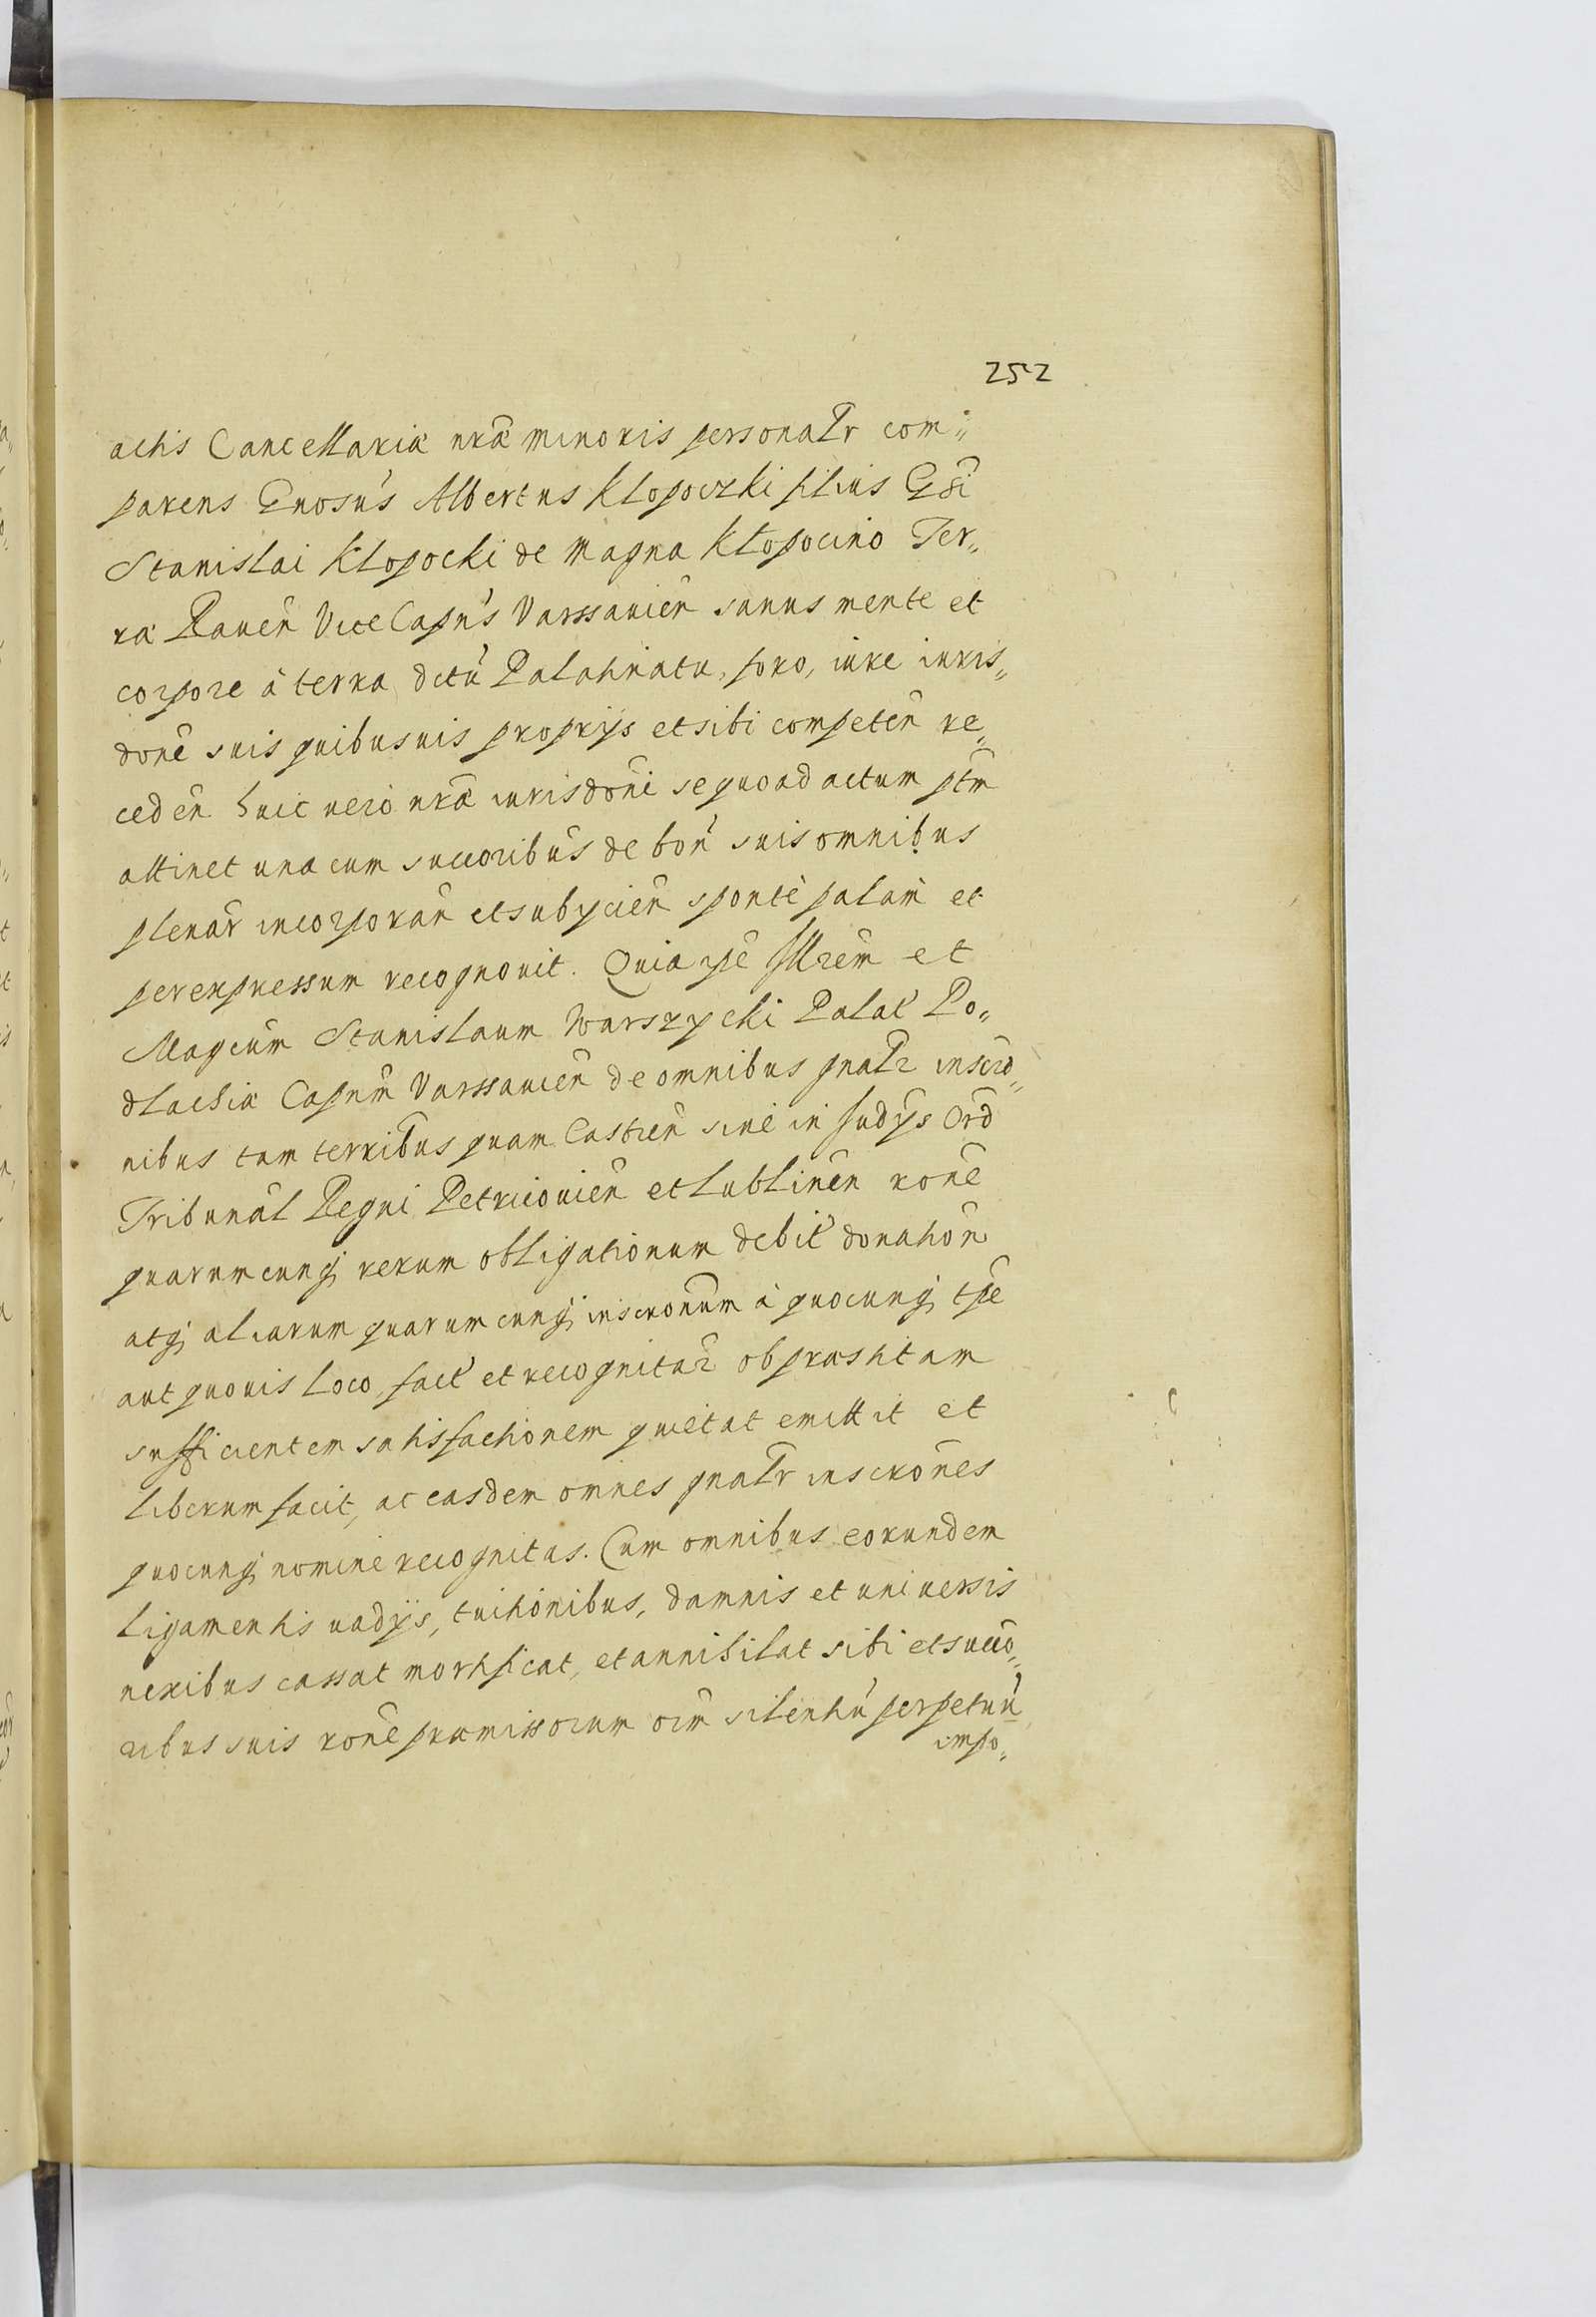 252
actis Cancellariæ nræ minoris personalr com„
parens Gnosus Albertus Klopoczki filius Gsi
Stanislai Klopocki de Magna Kłopocino Ter„
ræ Raven̄ ViceCapn̄s Varssavien̄ sanus mente et
corpore à terra dctū Palatinatu, foro, iure iuris„
done suis quibusuis proprijs et sibi competen̄ re„
ceden̄ huic vero nræ iurisdoni se quoad actum ptm
attinet una cum succoribus de bon̄ suis omnibus
plenar̄ incorporan̄ et subijcien̄ sponte palam et
per expressum recognovit. Quia ipe Illrem et
Magcum Stanislaum Warszycki Palat Po„
dlachiæ Capnm Varssavien̄ de omnibus gnalr inscro„
nibus tam terribus quam Castren̄ sive in Judijs Ord
Tribunal Regni Petricovien̄ et Lublinen̄ rone
quarumcunq; rerum obligationum debit donation̄
atq; aliarum quarumcunq; inscronum à quocunq; tpe
aut quovis loco fact et recognitar̄ ob præstitam
sufficientem satisfactionem quietat emittit et
liberum facit, ac easdem omnes gnalr inscrones
quocunq; nomine recognitas. Cum omnibus eorundem
ligamentis vadijs, tuitionibus, damnis et universis
nexibus cassat mortificat, et annihilat sibi et succo„
ribus suis rone præmissorum oim silentiū perpetuū
impo„